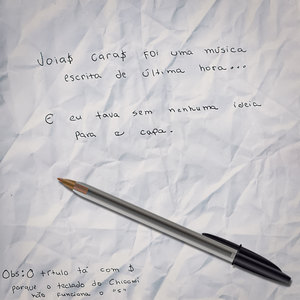 Joia$ Cara$ Foi uma música
escrita de última hora...
E eu tava sem nenhuma ideia
para a capa.
Obs: O título tá com $
porque o teclado do Chiasmi
não funciona o "s"